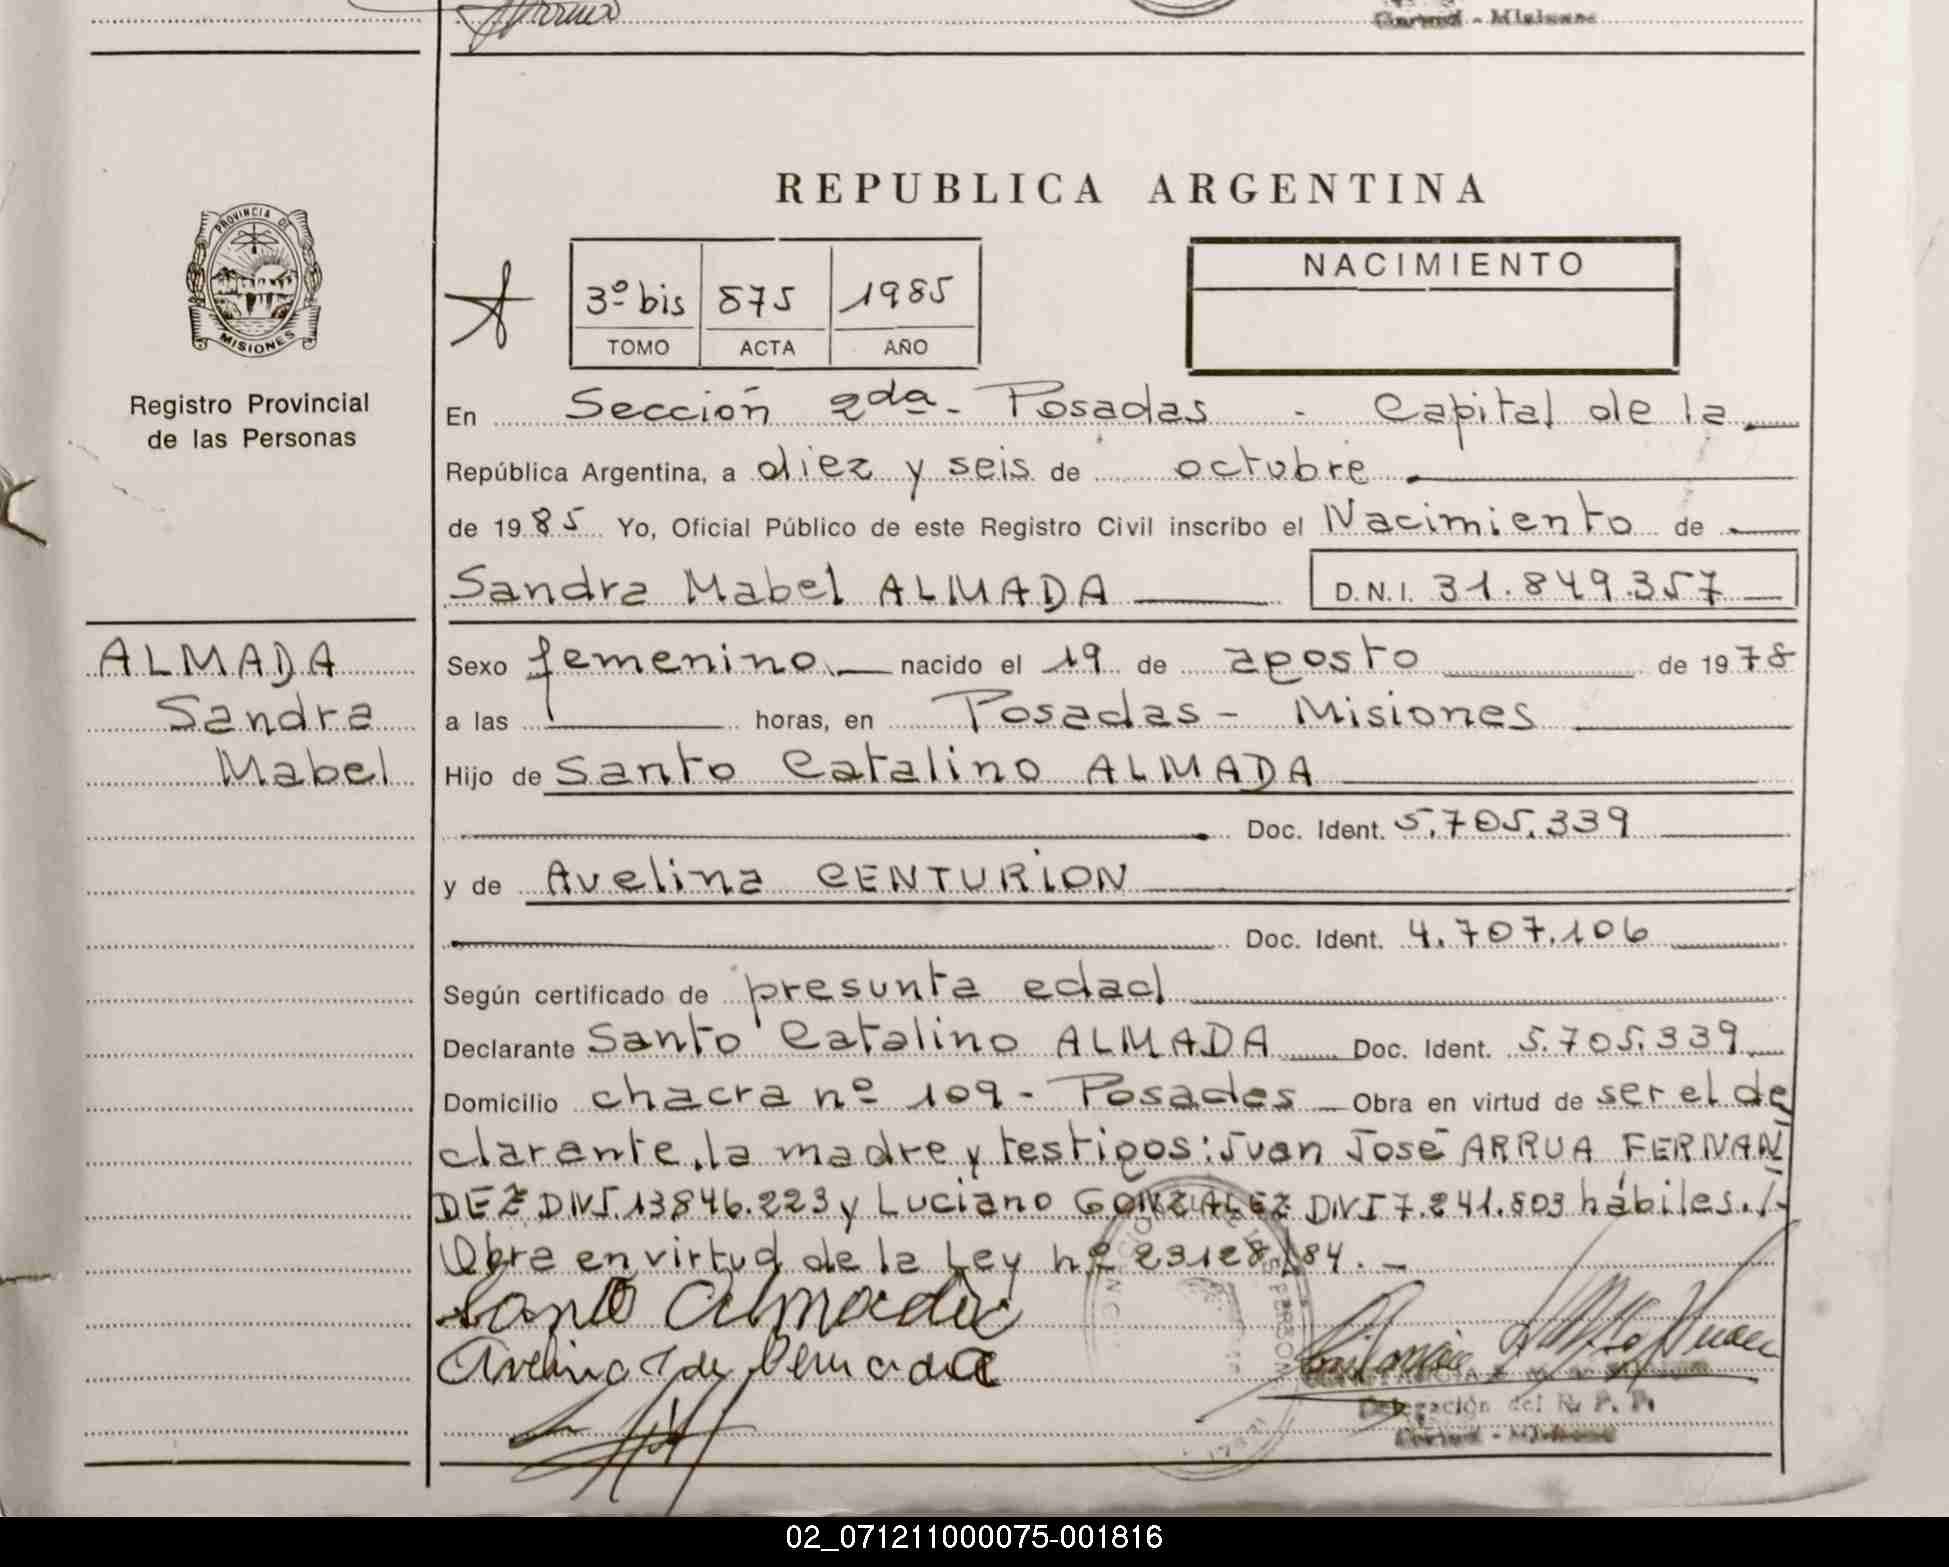 REPUBLICA ARGENTINA
PROVINCIA DE
MISIONES
Registro Provincial
de las Personas
3º bis 575 1985
TOMO ACTA AÑO
NACIMIENTO
En Sección 2da - Posadas - Capital de la
República Argentina, a diez y seis de octubre
de 1985 Yo, Oficial Público de este Registro Civil inscribo el Nacimiento de
Sandra Mabel ALMADA D.N.I. 31.849.357
ALMADA
Sandra
Mabel
Sexo femenino nacido el 19 de agosto de 1978
a las horas, en Posadas - Misiones
Hijo de Santo Catalino ALMADA
Doc. Ident. 5.705.339
y de Avelina CENTURION
Doc. Ident. 4.707.106
Según certificado de presunta edad
Declarante Santo Catalino ALMADA Doc. Ident. 5.705.339
Domicilio chacra nº 109 - Posadas Obra en virtud de ser el de
clarante, la madre y testigos: Juan José ARRUA FERNAN
DEZ DNI 13846.223 y Luciano GONZALEZ DNI 7.241.803 hábiles./-
Obra en virtud de la Ley nº 23128/84. -
Santo Almada
Avelina de Almada
Delegación del R. P. P.
02_071211000075-001816